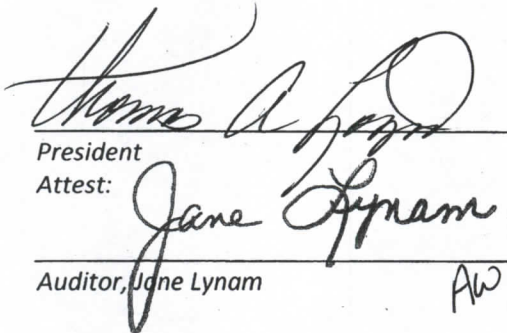 Thomas A
President
Attest:
Jane Lynam
Auditor, Jane Lynam
AW